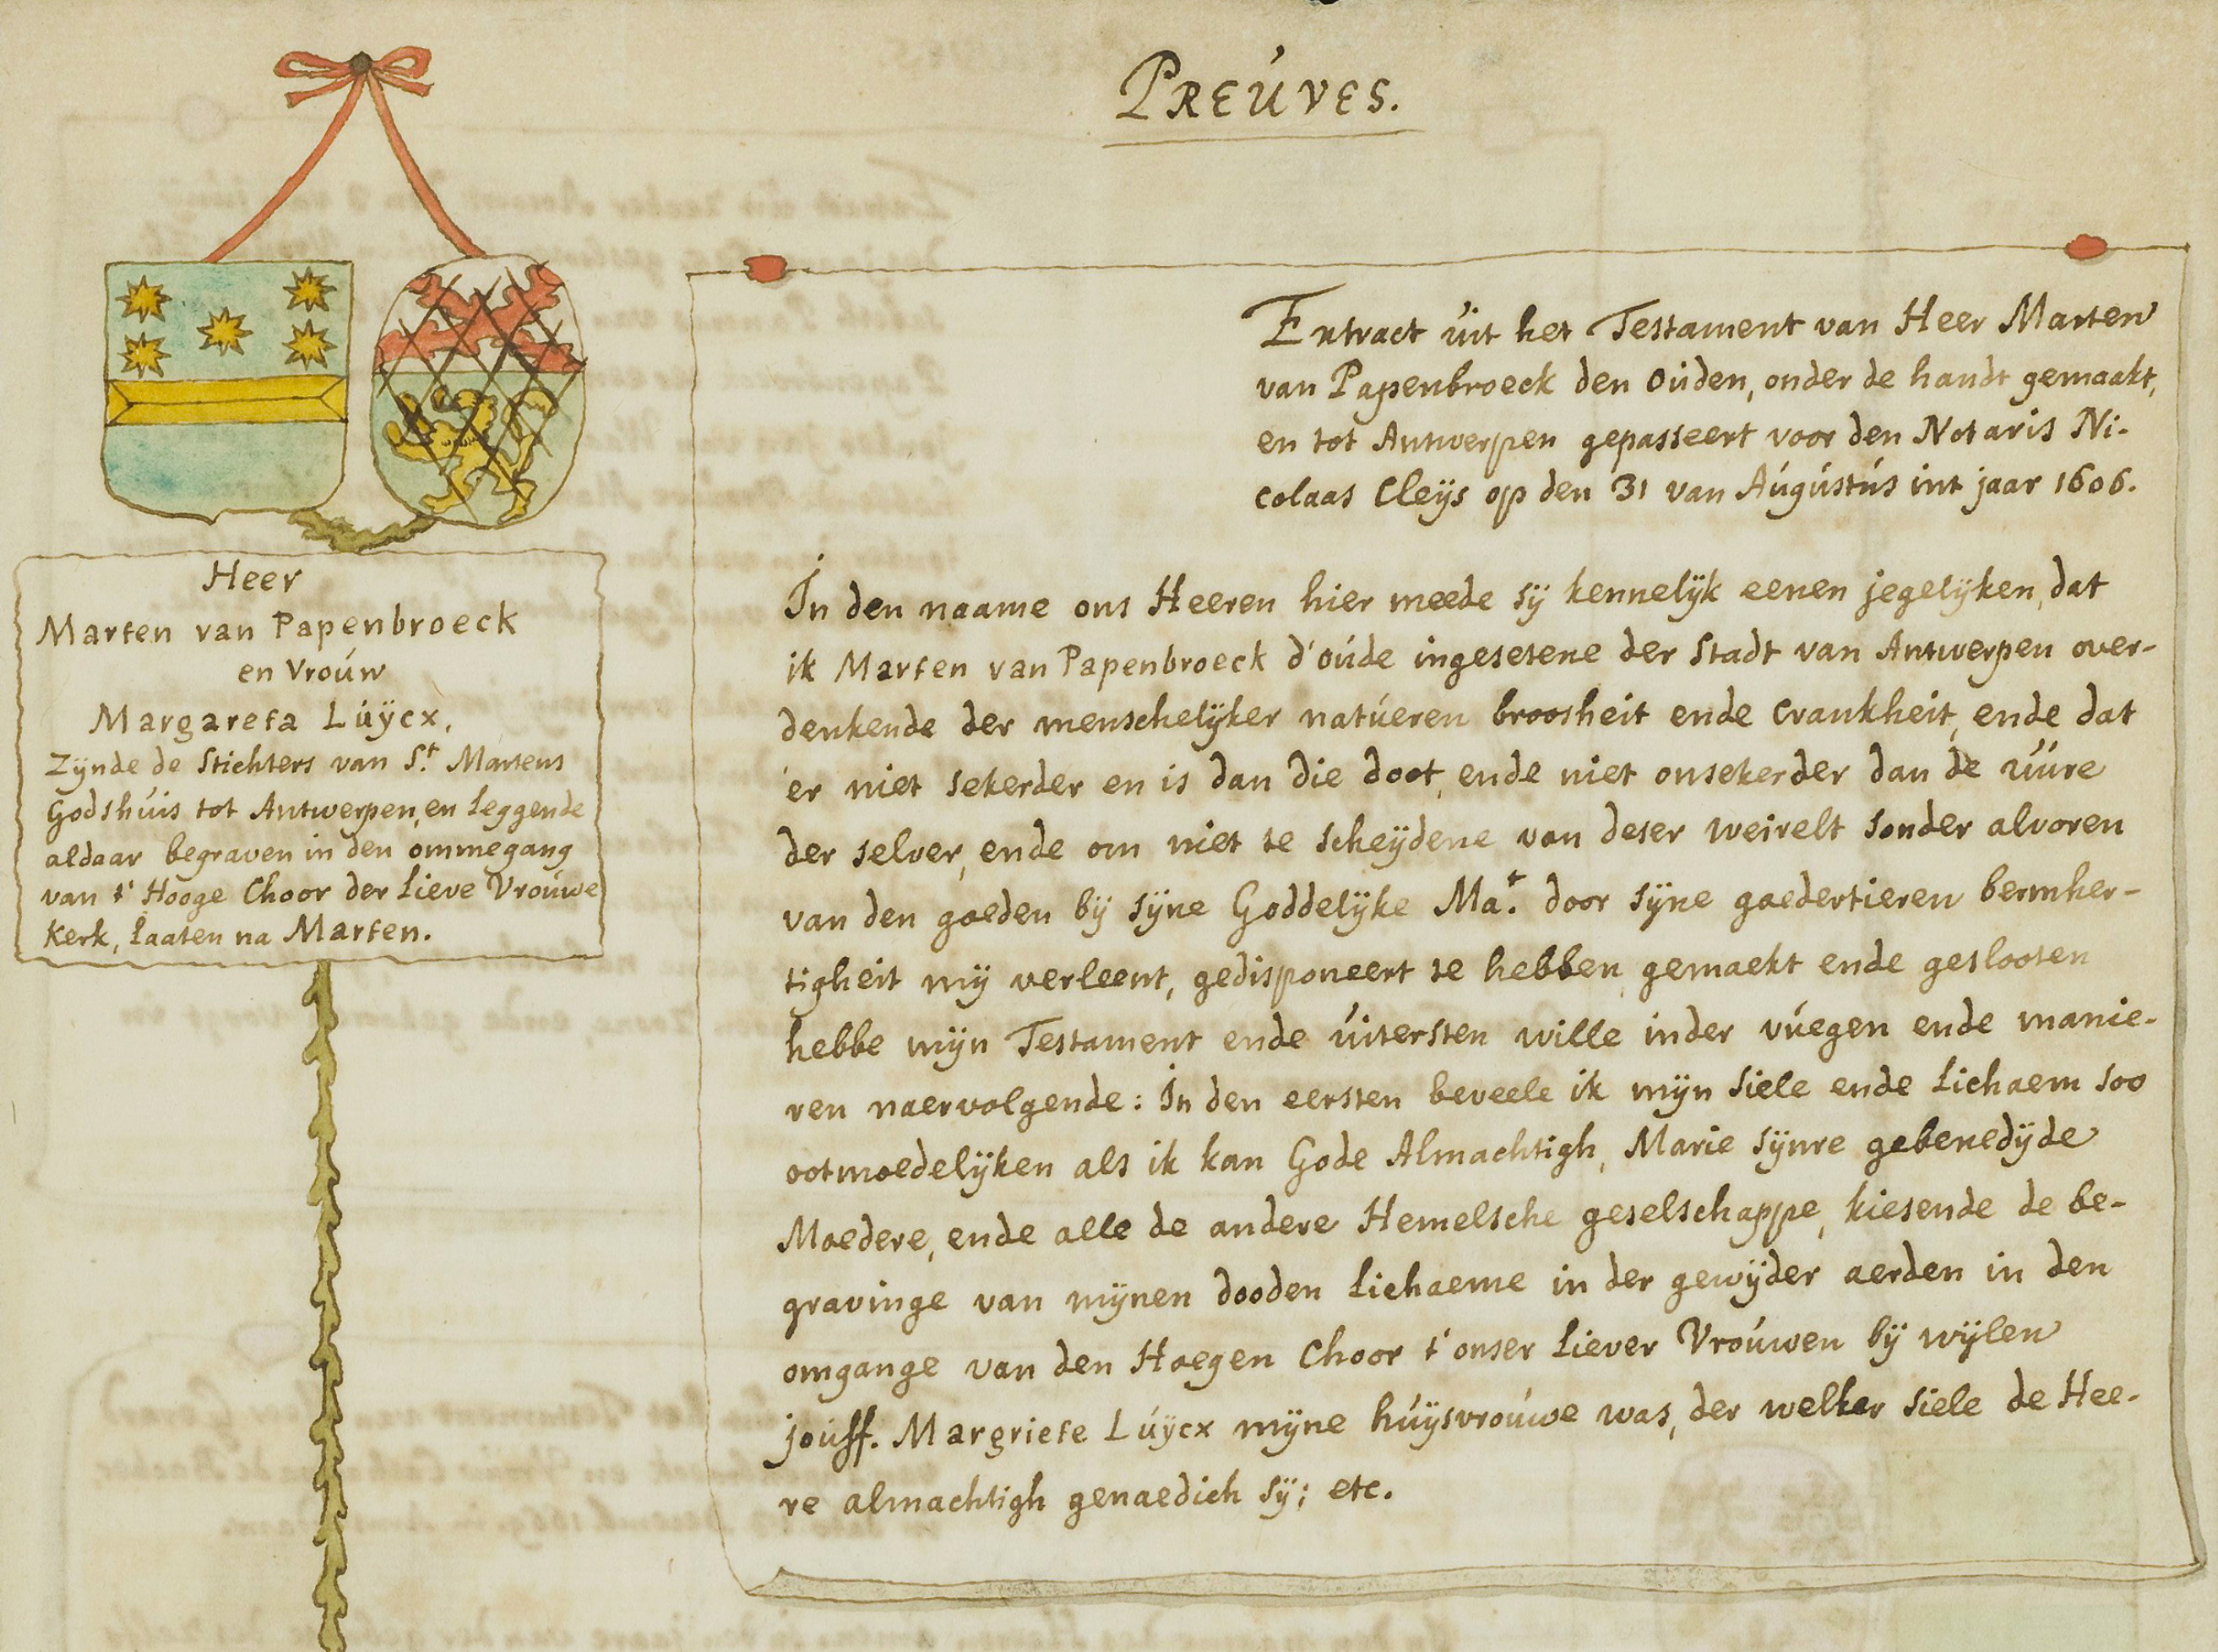 PREÚVES.
Heer
Marten van Papenbroeck
en Vroúw
Margareta Lúÿcx,
Zÿnde de Stichters van S.t Martens
Godshúis tot Antwerpen, en Leggende
aldaar begraven in den ommegang
van t' Hooge Choor der Lieve Vroúwe
Kerk, Laaten na Marten.
Extract úit het Testament van Heer Marten
van Papenbroeck den Oúden, onder de handt gemaakt,
en tot Antwerpen gepasseert voor den Notaris Ni-
colaas Cleÿs op den 31 van Aúgústús int jaar 1606.
In den naame ons Heeren hier meede sÿ kennelÿk eenen jegelÿken, dat
ik Marten van Papenbroeck d'oúde ingesetene der Stadt van Antwerpen over-
denkende der menschelÿker natúeren broosheit ende crankheit, ende dat
'er niet sekerder en is dan die doot, ende niet onsekerder dan de úúre
der selver, ende om niet te scheÿdene van deser weirelt sonder alvoren
van den goeden bÿ sÿne Goddelÿke Ma.t door sÿne goedertieren bermher-
tigheit mÿ verleent, gedisponeert te hebben, gemaekt ende geslooten
hebbe mÿn Testament ende úitersten wille inder vúegen ende manie-
ren naervolgende: In den eersten beveele ik mÿn Siele ende Lichaem soo
ootmoedelÿken als ik kan Gode Almachtigh, Marie sÿnre gebenedÿde
Moedere, ende alle de andere Hemelsche geselschappe, kiesende de be-
gravinge van mÿnen dooden Lichaeme in der gewÿder aerden in den
omgange van den Hoegen Choor t'onser Liever Vroúwen bÿ wÿlen
joúff. Margriete Lúÿcx mÿne húÿsvroúwe was, der welker siele de Hee-
re almachtigh genaedich sÿ; etc.